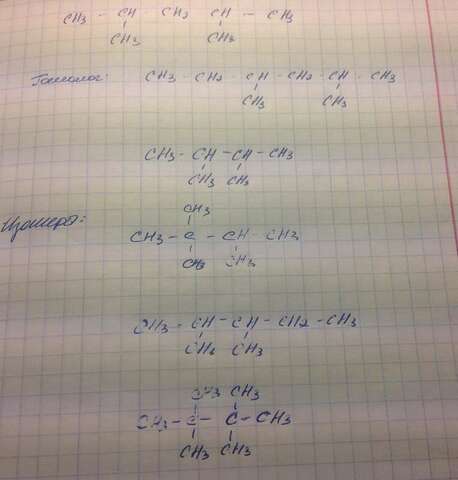 CH3 - CH - CH2 - CH - CH3
CH3 CH3
Гомолог: CH3 - CH2 - CH - CH2 - CH - CH3
CH3 CH3
CH3 - CH - CH - CH3
CH3 CH3
Изомеры:
CH3
CH3 - C - CH - CH3
CH3 CH3
CH3 - CH - CH - CH2 - CH3
CH3 CH3
CH3 CH3
CH3 - C - C - CH3
CH3 CH3